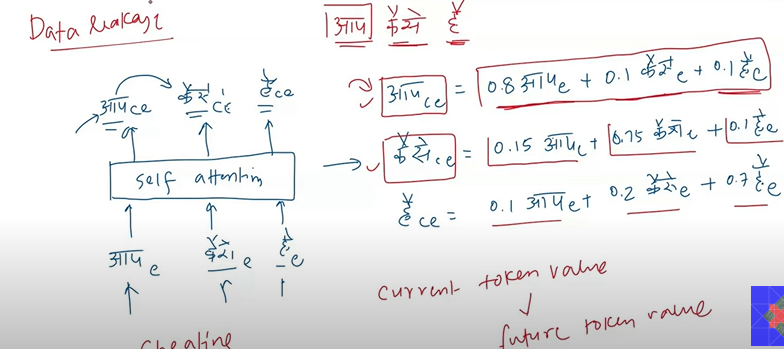 Data leakage
आप कैसे हैं
आप ce कैसे ce हैं ce
self attention
आप e कैसे e हैं e
cheating
आप ce = 0.8 आप e + 0.1 कैसे e + 0.1 हैं e
कैसे ce = 0.15 आप e + 0.75 कैसे e + 0.1 हैं e
हैं ce = 0.1 आप e + 0.2 कैसे e + 0.7 हैं e
current token value
future token value